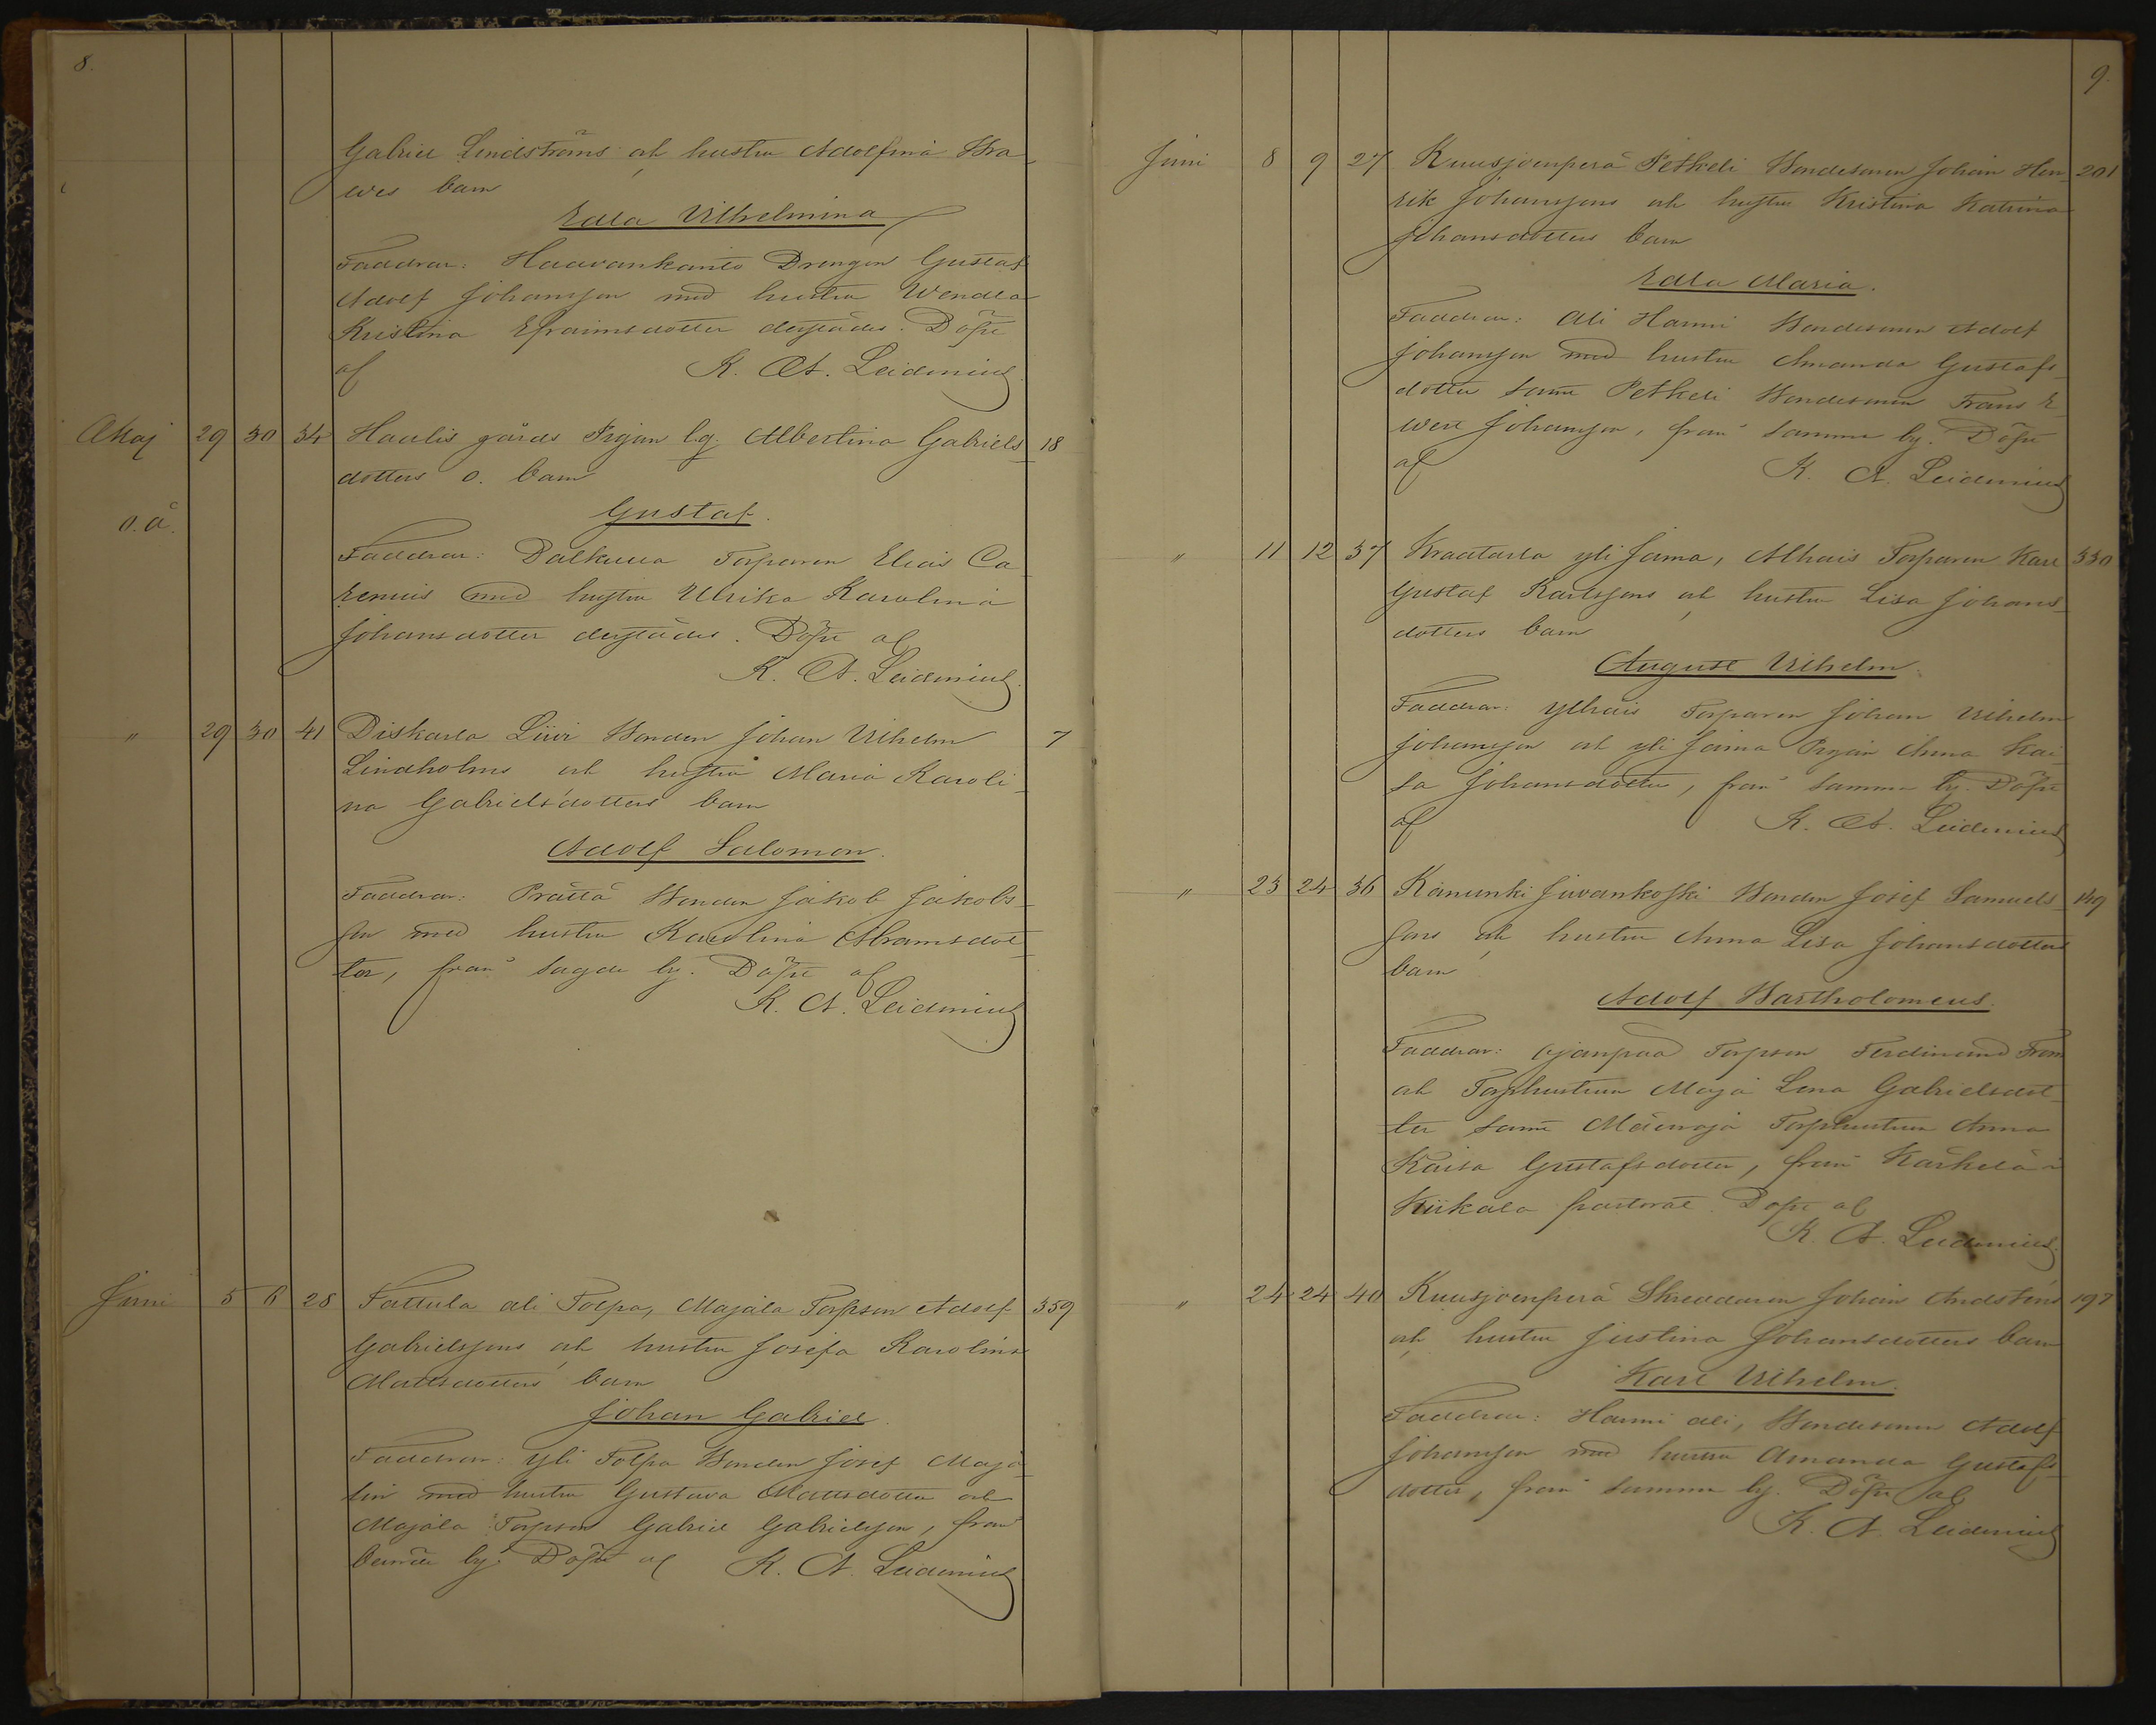 8.
Gabriel Lindströms och hustru Adolfina
barn
Edla Vilhelmina
Faddrar: Haavankanto Drengen Gustaf
Adolf Johansson med hustru Wendla
Kristina Efraimsdotter derstädes. Döpt
af K. A. Leidenius
Maj 29 30 34 Haulis gårds Pigan lg. Albertina Gabriels- 18
dotters o. barn
o.ä. Gustaf.
Faddrar: Torparen Elias Ca-
renius med hustru Ulrika Karolina
Johansdotter derstädes. Döpt af
K. A. Leidenius.
" 29 30 41 Diskarla Liivi Bonden Johan Vilhelm 7
Lindholms och hustru Maria Karoli-
na Gabrielsdotters barn
Adolf Salomon.
Faddrar: Prättä Bonden Jakob Jakobs-
son med hustru Karolina Abramsdot-
ter, från sagde by. Döpt af
K. A. Leidenius
Juni 5 6 28 Tattula ali Tolpa, Majala Torpson Adolf 359
Gabrielssons och hustru Josefa Karolina
Mattsdotters barn
Johan Gabriel.
Faddrar: Yli Tolpa Bonden Josef Maja-
lin med hustru Gustava Mattsdotter och
Majala Torpson Gabriel Gabrielsson, från
berörde by. Döpt af K. A. Leidenius
9.
Juni 8 9 27 Kuusjoenperä Petkeli Bondesonen Johan Hen- 201
rik Johanssons och hustru Kristina Katrina
Johansdotters barn
Edla Maria.
Faddrar: Ali Hanni Bondesonen Adolf
Johansson med hustru Amanda Gustafs-
dotter samt Petkeli Bondesonen Frans E-
vert Johansson, från samma by. Döpt
af K. A. Leidenius
" 11 12 37 Kraatarla yli Jama, Alhais Torparen Karl 330
Gustaf Karlssons och hustru Lisa Johans-
dotters barn
August Vilhelm.
Faddrar: Ylhais Torparen Johan Vilhelm
Johansson och yli Jama Pigan Anna Kai-
sa Johansdotter, från samma by. Döpt
af K. A. Leidenius
" 23 24 36 Kanunki Juvankoski Bonden Josef Samuels- 149
sons och hustru Anna Lisa Johansdotters
barn
Adolf Bartholomeus.
Faddrar: Ojanpää Torpson Ferdinand From
och Torphustrun Maja Lena Gabrielsdot-
ter samt Torphustrun Anna
Kaisa Gustafsdotter, från Kärkelä i
Kiikala pastorat. Döpt af
K. A. Leidenius.
" 24 24 40 Kuusjoenperä Skreddaren Johan Andsténs 197
och hustru Justina Johansdotters barn
Karl Vilhelm.
Faddrar: Hanni ali, Bondesonen Adolf
Johansson med hustru Amanda Gustafs-
dotter, från samma by. Döpt af
K. A. Leidenius